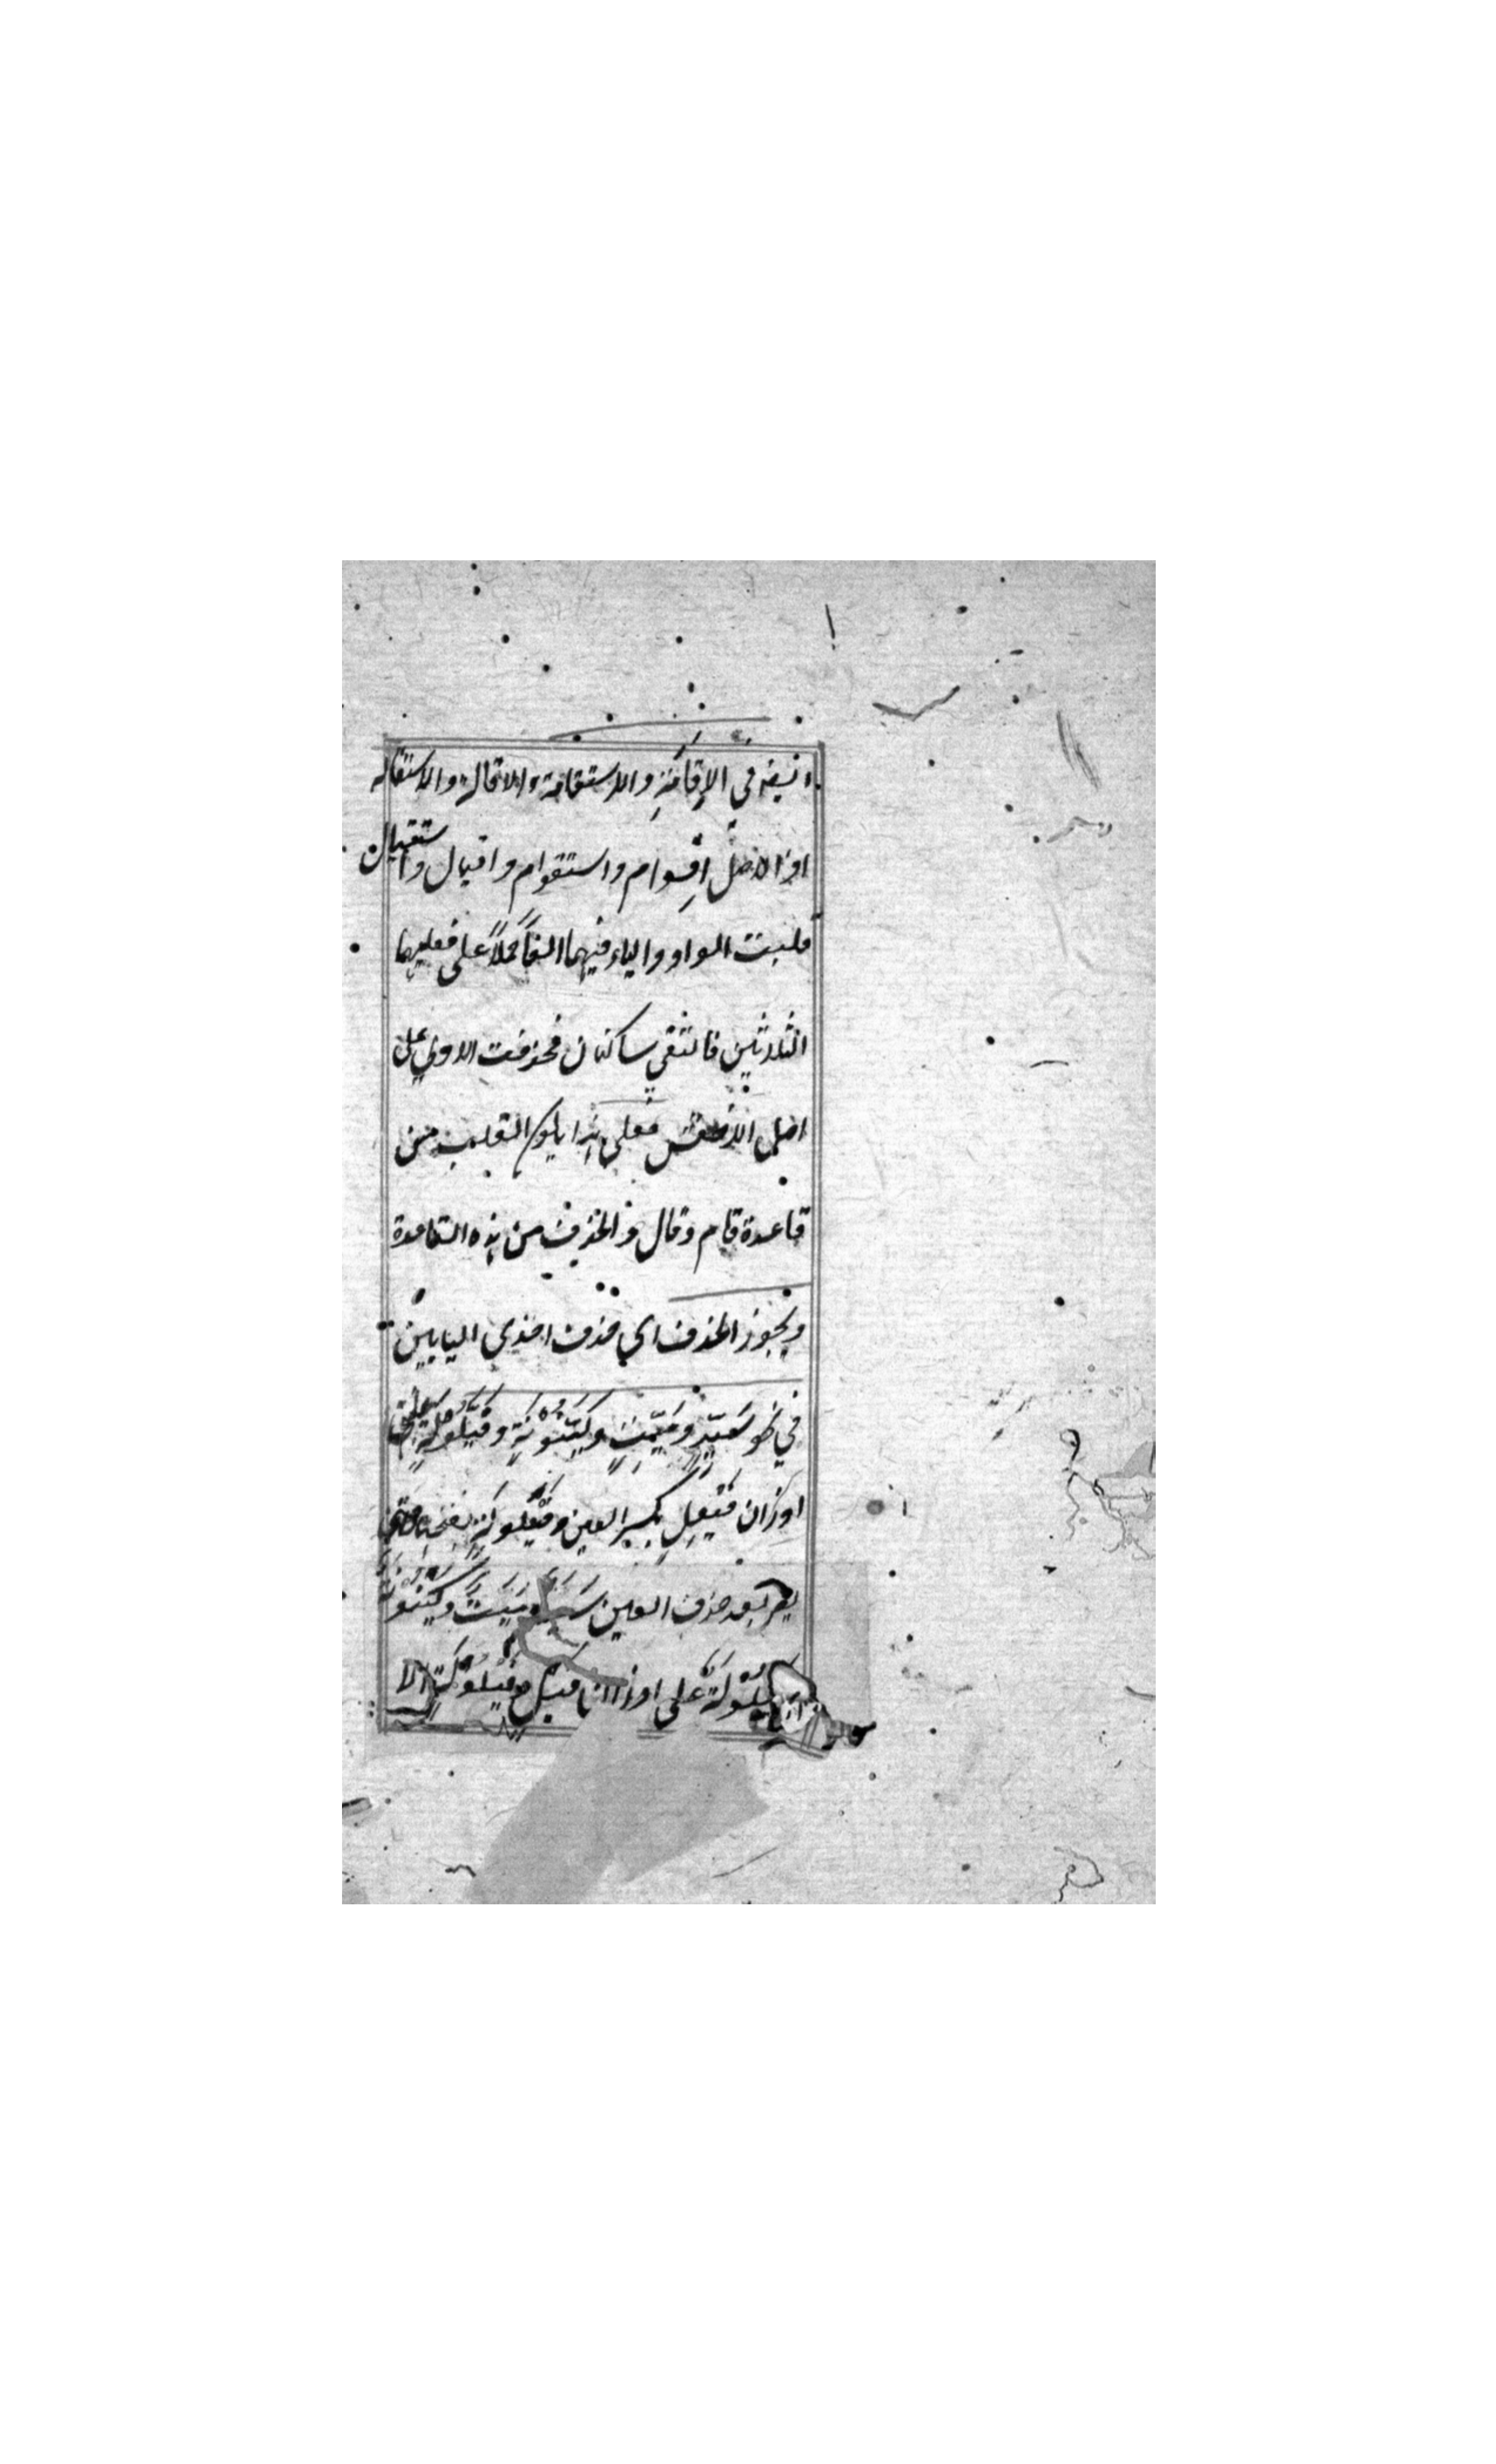 في الإقامة والاستقامة والاقالة والاستقاله
اذ الاصل اقوام واستقوام واقيال واستقيال
قلبت الواو والياء فيهما الفاً حملاً على فعليهما
الثلاثين فالتقي ساكنان فحذفت الاولي على
اصل الاخفش فعلى هذا يكون القلب من
قاعدة قام وقال والحذف من هذه القاعدة
ويجوز الحذف اي حذف احدي اليايين
في نحو سَيّدٍ ومَيّتٍ وكَيَّنُونَةٍ وقَيَّلُولَةٍ على
اوزان فَيْعِلٍ بكسر العين وفَيْعَلُولَةٍ بفتحها
بعد حذف العين سَيْد ومَيْت وكَيْنُونَة
وقَيْلُولَة على اوزان فيل وفَيْلُولَة الا